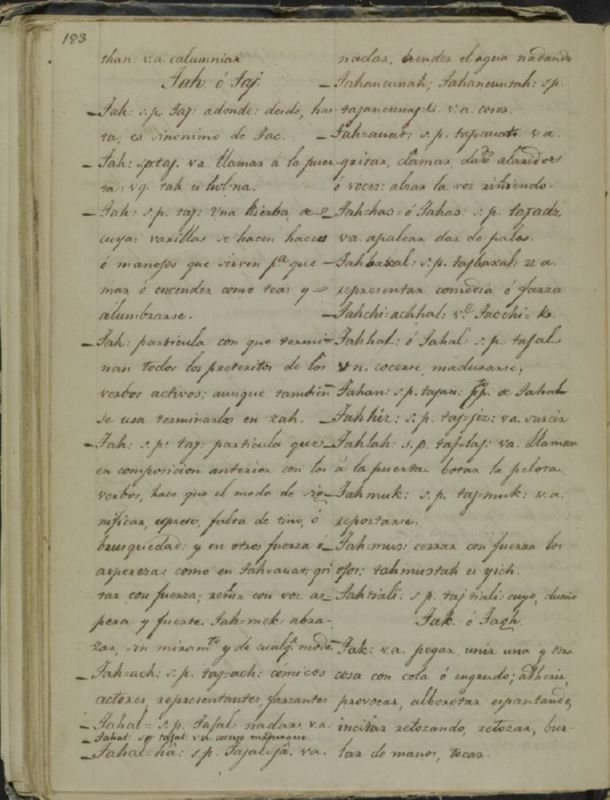 183
than: v.a. calumniar
Tah. ó Taj.
Tah: s.p. Taj: adonde: desde, has
ta, es sinonimo de Tac.
Tah: sp taj. va. llamar á la puer
ta: vg. tah u hol-na.
Tah: s.p. taj: una hierba, de
cuyas varillas se hacen haces
ó manojos que sirven pa. que
mar ó encender como teas y
alumbrarse.
Tah: particula con que termi
nan todos los preteritos de los
verbos activos: aunque tambien
se usa terminarlos en zah.
Tah: s.p: taj: particula que
en composicion anterior con los
verbos, hace que el modo de sig
nificar, exprese, falta de tino, ó
brusquedad: y en otros fuerza ó
aspereza: como en Tah=auat, gri
tar con fuerza; reñir con voz as
pera y fuerte. Tah=mek abra
zar, sin miramto. y de cualqr. modo.
Tah=ach: s.p. taj=ach: cómicos
actores, representantes, farzantes
Tahal= s.p. Tajal: nadar v.a.
Tahal: sp tajal: v.n. cocerse madurarse
Tahal=há: s.p. Tajal=já. va.
nadar, hender el agua nadando
Tahancunah; Tahancuntah: s.p.
tajancunaj &. v.a. cocer.
Tah=auat: s.p. taj=auat v.a.
gritar, clamar, dar alaridos
ó voces: alzar la voz riñiendo.
va. apalear dar de palos.
Tahbaxal: s.p. tajbaxal: v.a.
representar comedia ó farza
Tahchi=achhal: ve. Tacchi= &.
Tahhal: ó Tahal: s.p. tajal
v.n. cocerse, madurarse.
Tahan: s.p. tajan: pp. de Tahal
s.p. taj=jiz: va. surcir
Tahlah: s.p. taj=laj: va. llamar
á la puerta. botar la pelota.
Tahmuk: s.p. taj=muk: v.a.
reportarse.
Tah=muz: cerrar con fuerza los
ojos: tahmuztah u yich.
Tahtiali: s.p. taj tiali: cuyo, dueño
Tak. ó Taqh.
Tak: v.a. pegar, unir una y otra
cosa con cola ó engrudo; adherir,
provocar, alborotar espantando,
incitar retozando, retozar, bur-
lar de manos, tocar.